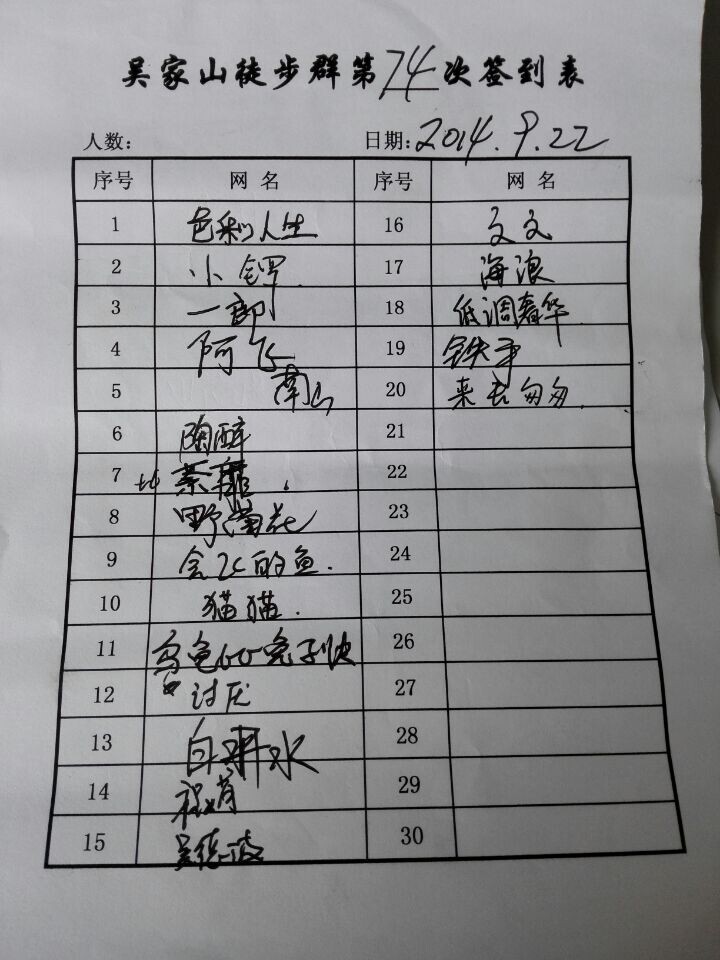 吴家山徒步群第74次签到表
人数: 日期: 2014.9.22
序号 网名 序号 网名
1 色彩人生 16 文文
2 小锣 17 海浪
3 一郎 18 低调奢华
4 阿飞 19 铁军
5 南山 20 来去匆匆
6 陶醉 21
7 22
8 野菊花 23
9 会飞的鱼 24
10 猫猫 25
11 乌龟比兔子快 26
12 讨厌 27
13 自来水 28
14 29
15 30